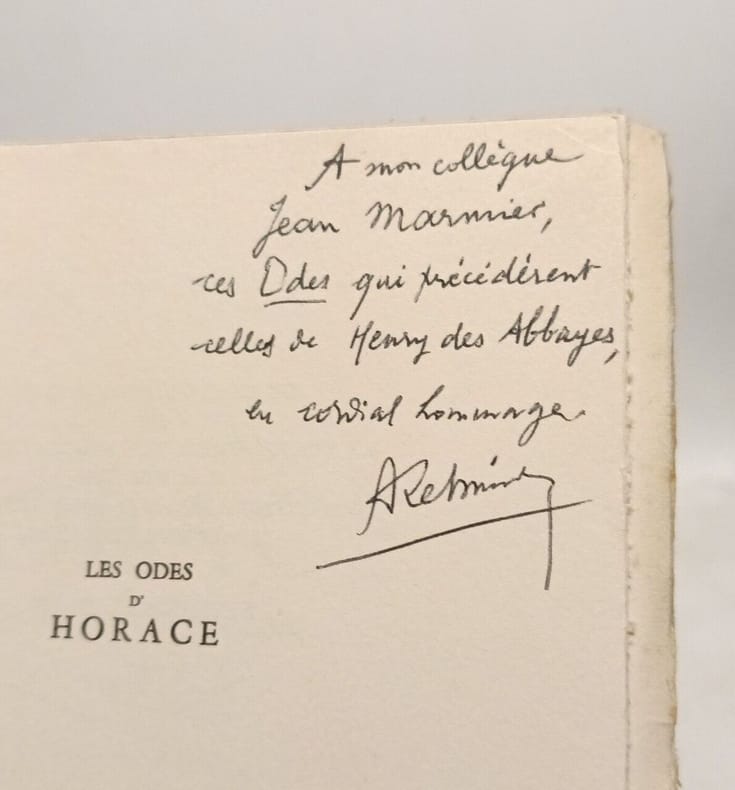 A mon collègue
Jean Marmier,
ces Odes qui précédèrent
celles de Henry des Abbayes,
en cordial hommage.
LES ODES
D'
HORACE